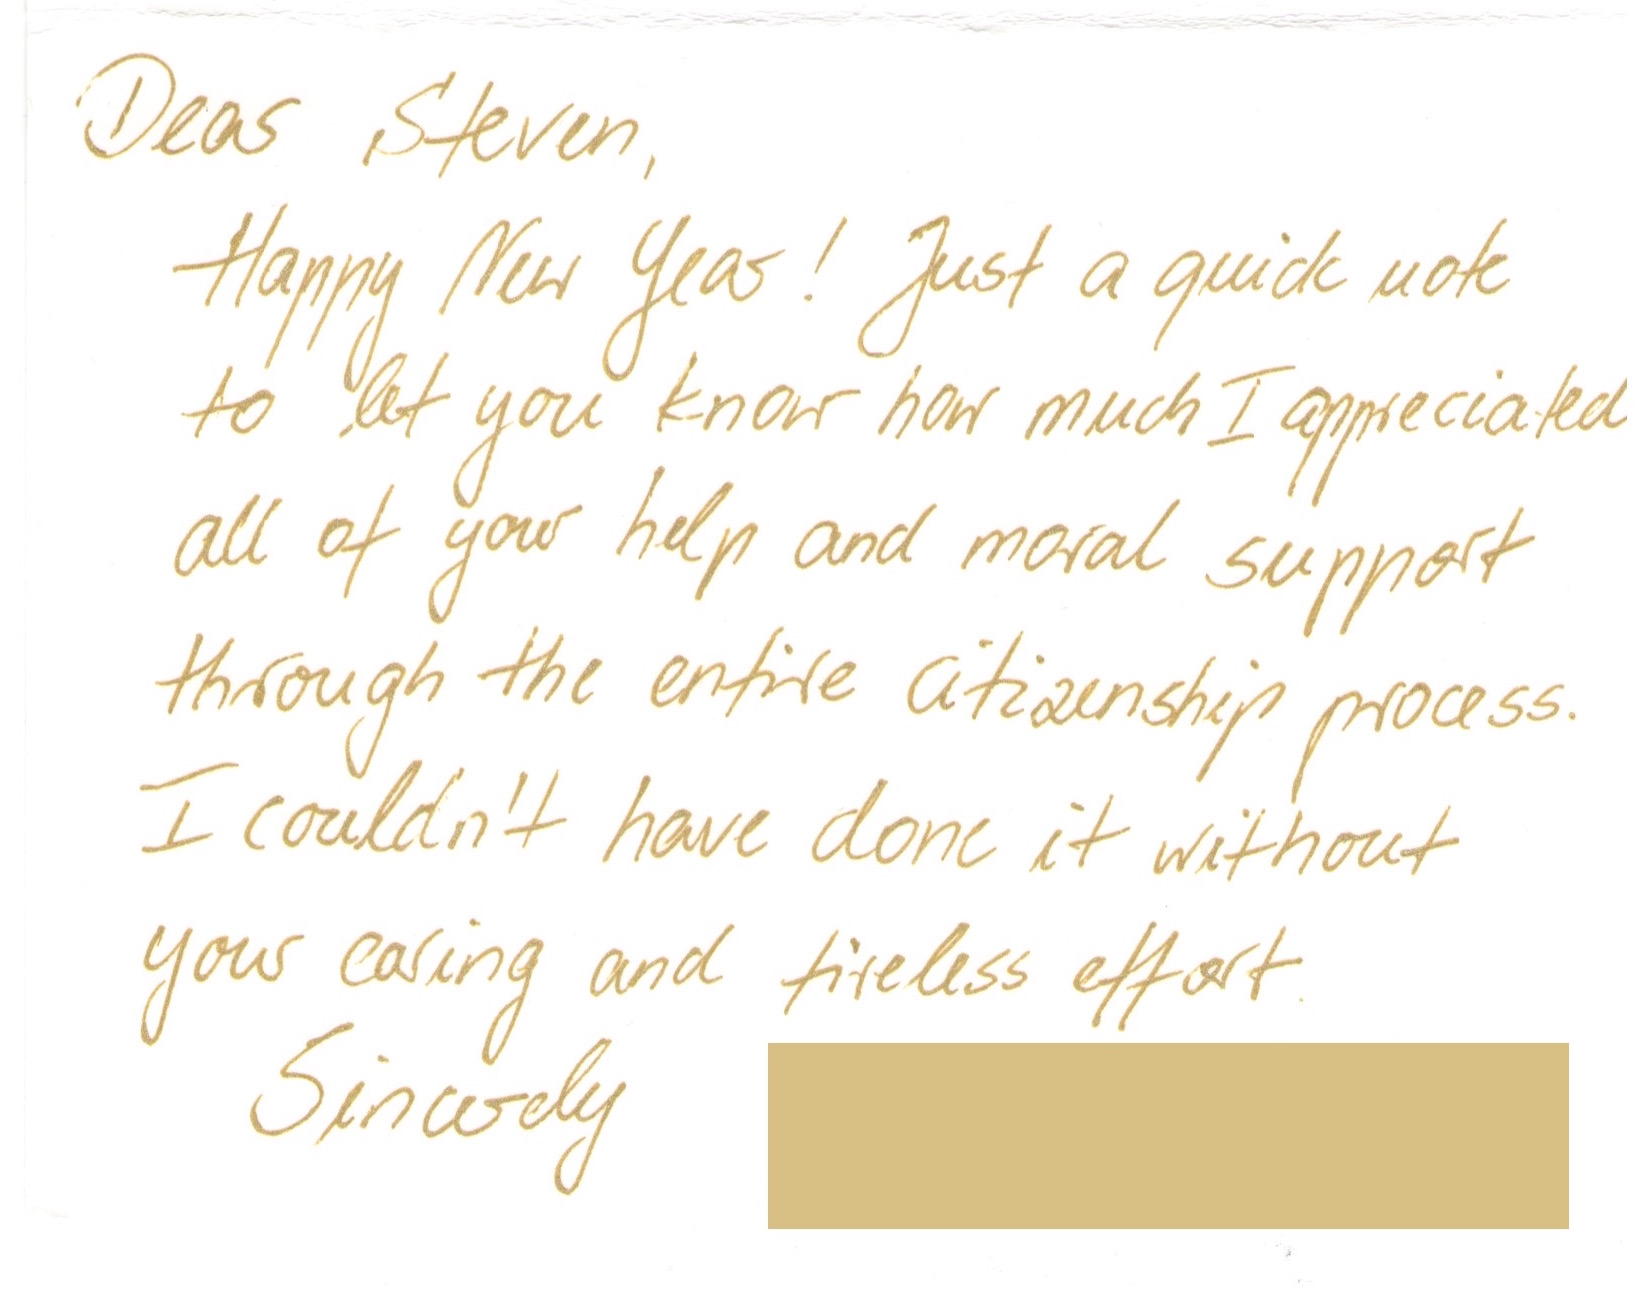 Dear Steven,
Happy New Year! Just a quick note
to let you know how much I appreciated
all of your help and moral support
through the entire citizenship process.
I couldn't have done it without
your caring and tireless effort.
Sincerely